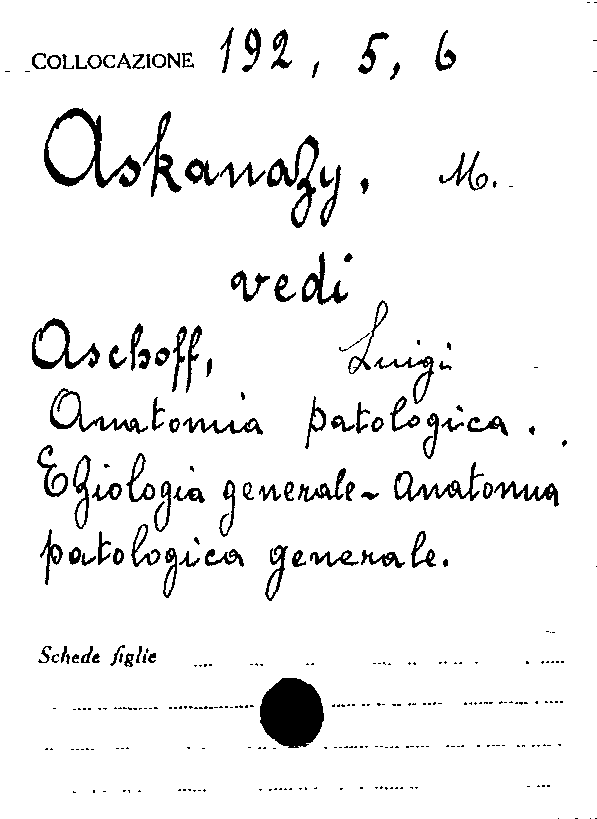 COLLOCAZIONE 192, 5, 6
Askanazy, M.
vedi
Aschoff, Luigi
Anatomia patologica.
Eziologia generale - Anatomia
patologica generale.
Schede figlie